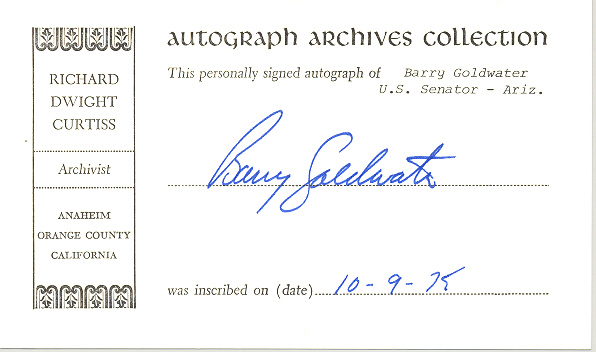 RICHARD
DWIGHT
CURTISS
Archivist
ANAHEIM
ORANGE COUNTY
CALIFORNIA
autograph archives collection
This personally signed autograph of Barry Goldwater
U.S. Senator - Ariz.
Barry Goldwater
was inscribed on (date) 10-9-75